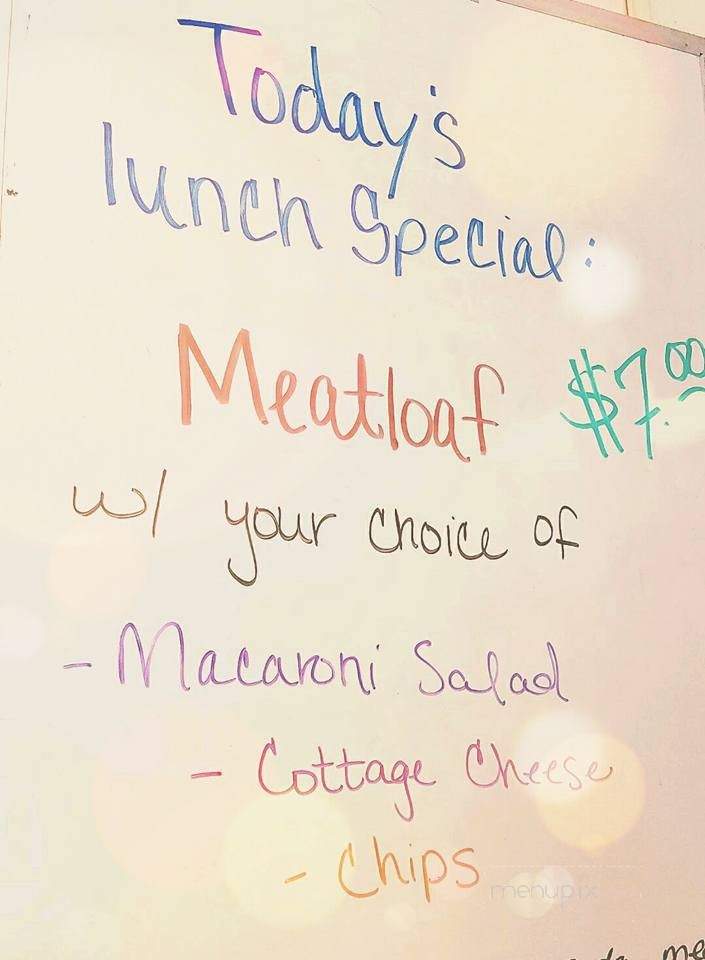 Today's
lunch Special:
Meatloaf $7.00
w/ your choice of
- Macaroni Salad
- Cottage Cheese
- Chips
menupix